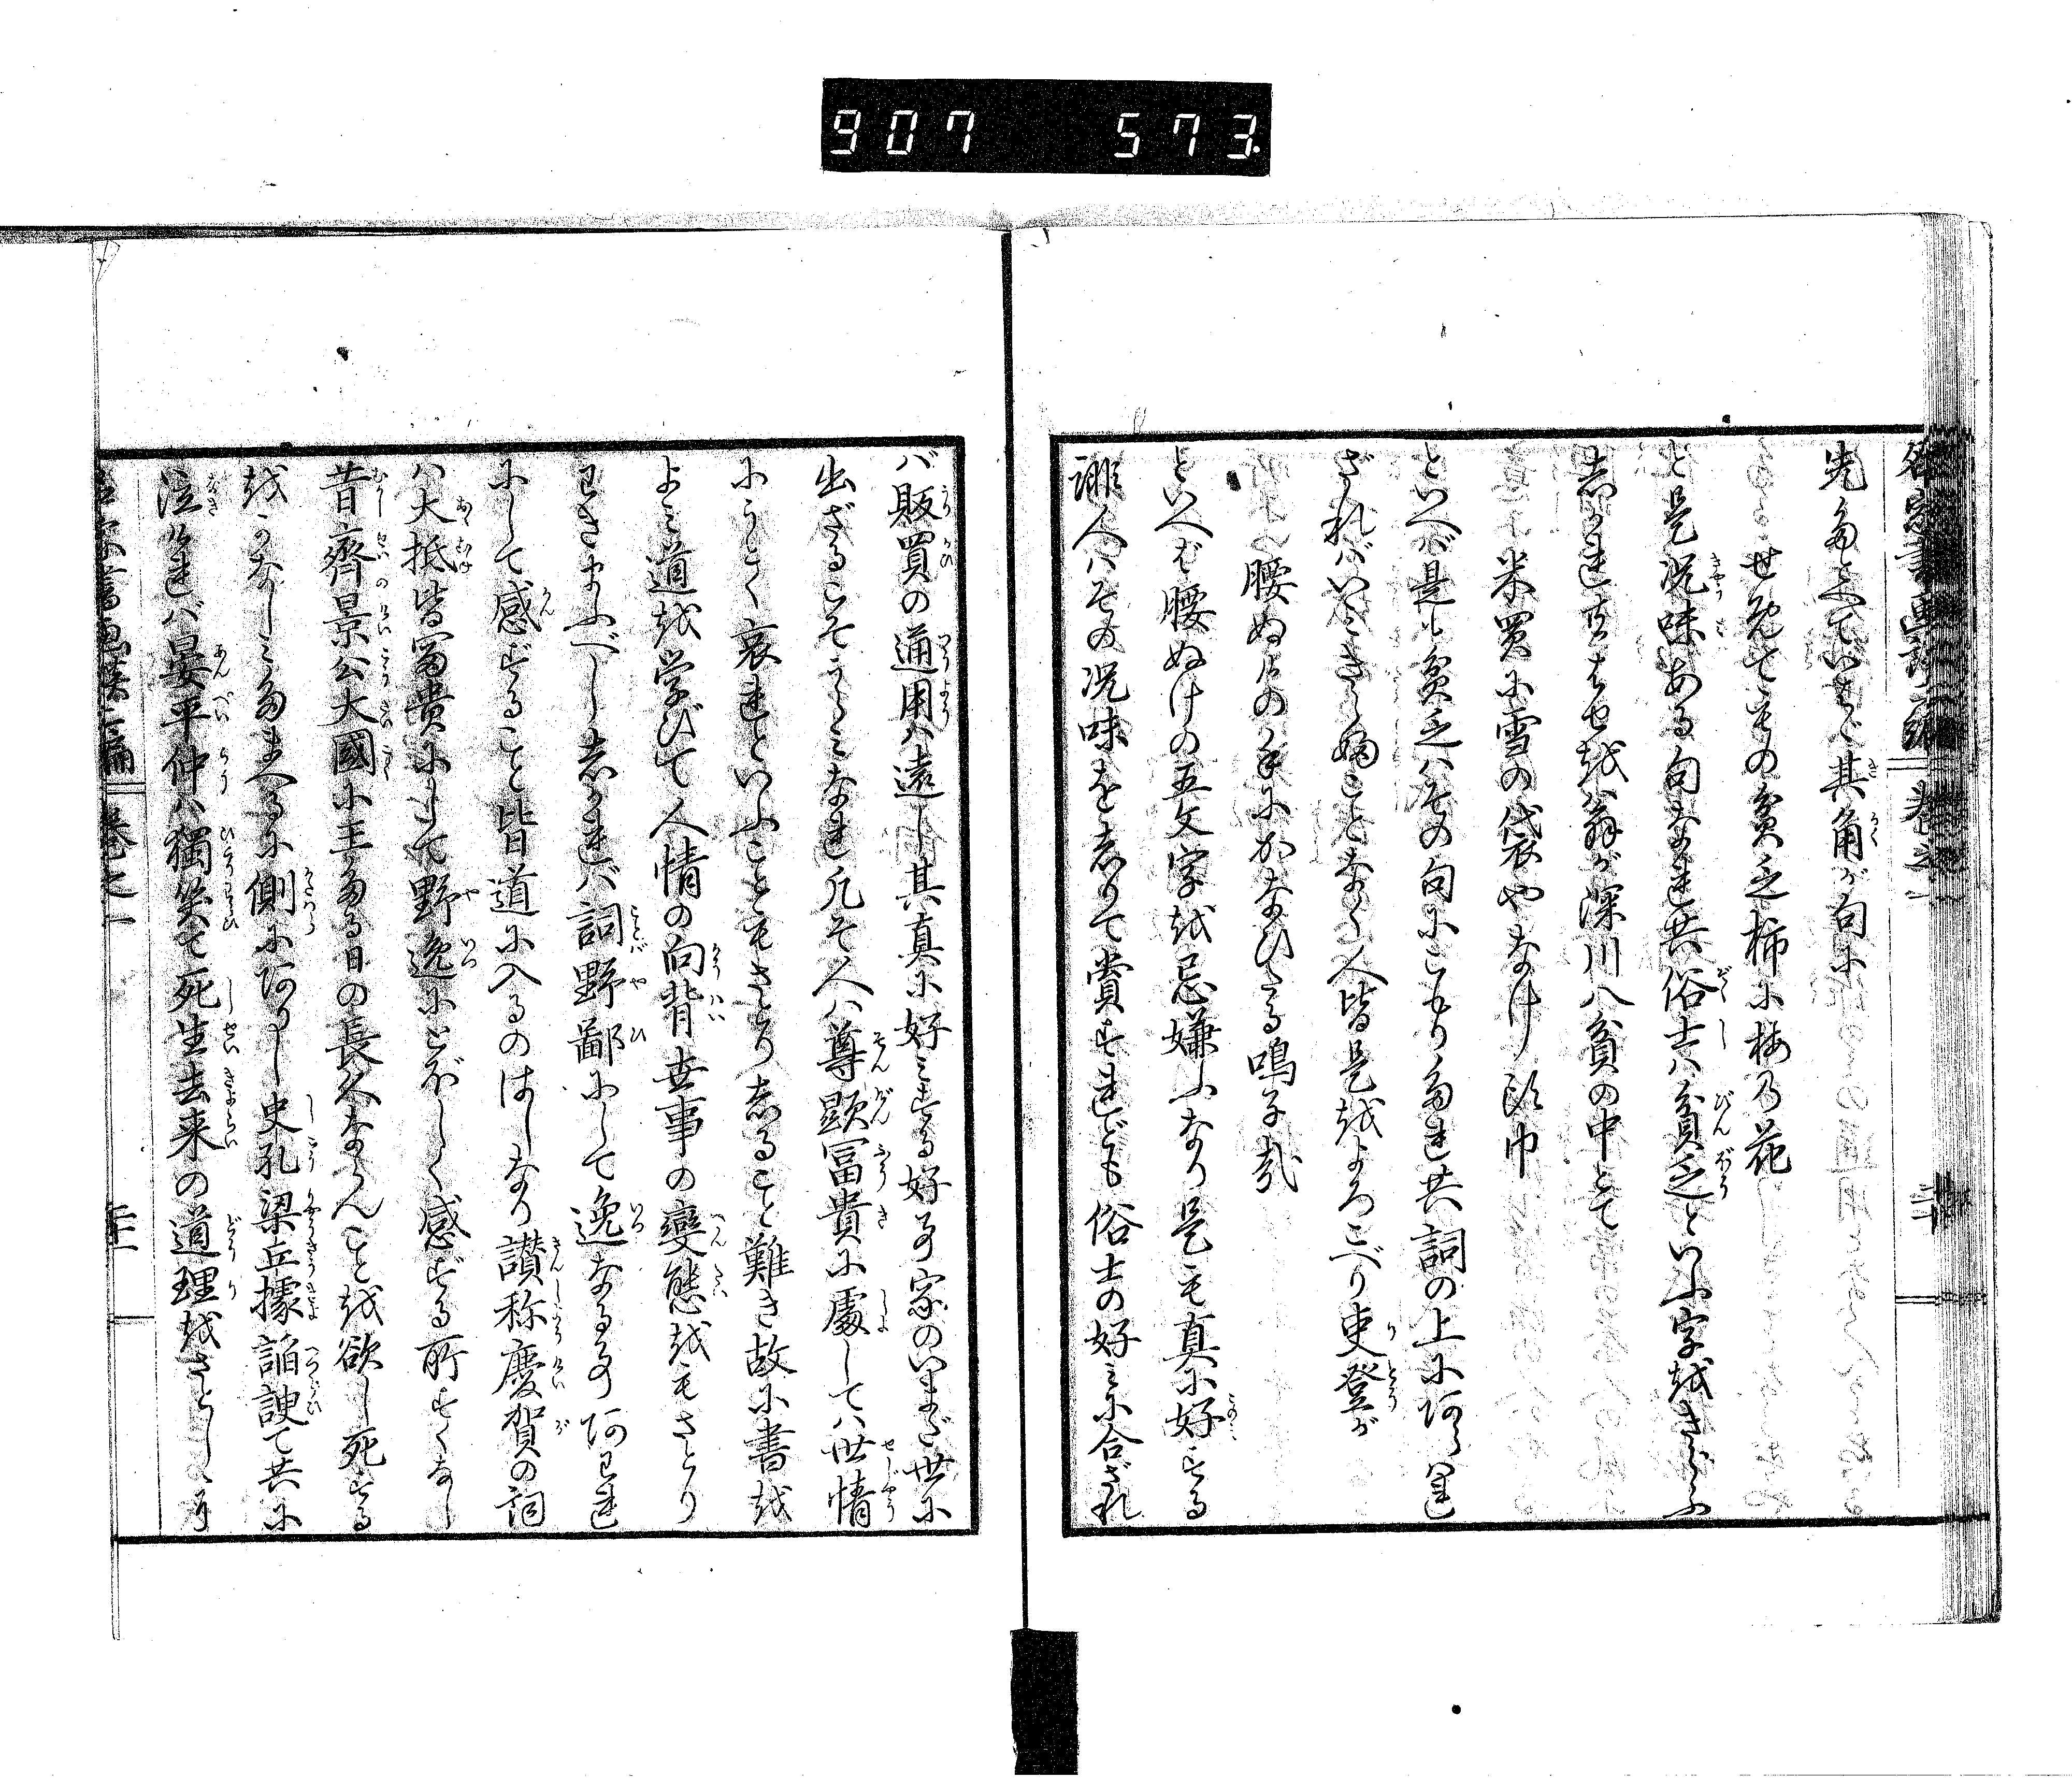 907 573
先たとへていはゞ其角が句に
せめてもの貧乏柿に梅の花
と是況味ある句なれ共俗士ハ貧乏といふ字をきらふ
しかれ共はせを翁が深川八貧の中とて
米買に雪の袋やなげ頭巾
といへば是も貧乏ハその句にこもりたれ共詞の上にあらはれ
ざればいみきらふことなく人皆是をよろこべり吏登が
腰ぬけの手におかなひたる鳴子哉
といへど腰ぬけの五文字を忌嫌ふなり是も真に好する
誹人ハその況味をしりて賞すれども俗士の好みに合ざれ
バ販買の通用ハ遠し其真に好みする好事家のいまだ世に
出ざるこそうらみなれ凡そ人ハ尊顕冨貴に處してハ世情
にうとく哀れといふこともさとりしること難き故に書を
よミ道を学びて人情の向背世事の變態をもさとり
わきまふべししかれバ詞野鄙にして逸なる事あれ
にして感ずること皆道に入るのはしなり讃称慶賀の詞
ハ大抵皆冨貴にして野逸にとぼしく感ずる所すくなし
昔齊景公大國に王たる日の長久ならんことを欲し死する
をかなしミたまへるに側にありし史孔梁丘據諂諛て共に
泣けれバ晏平仲ハ獨笑て死生去来の道理をさとし